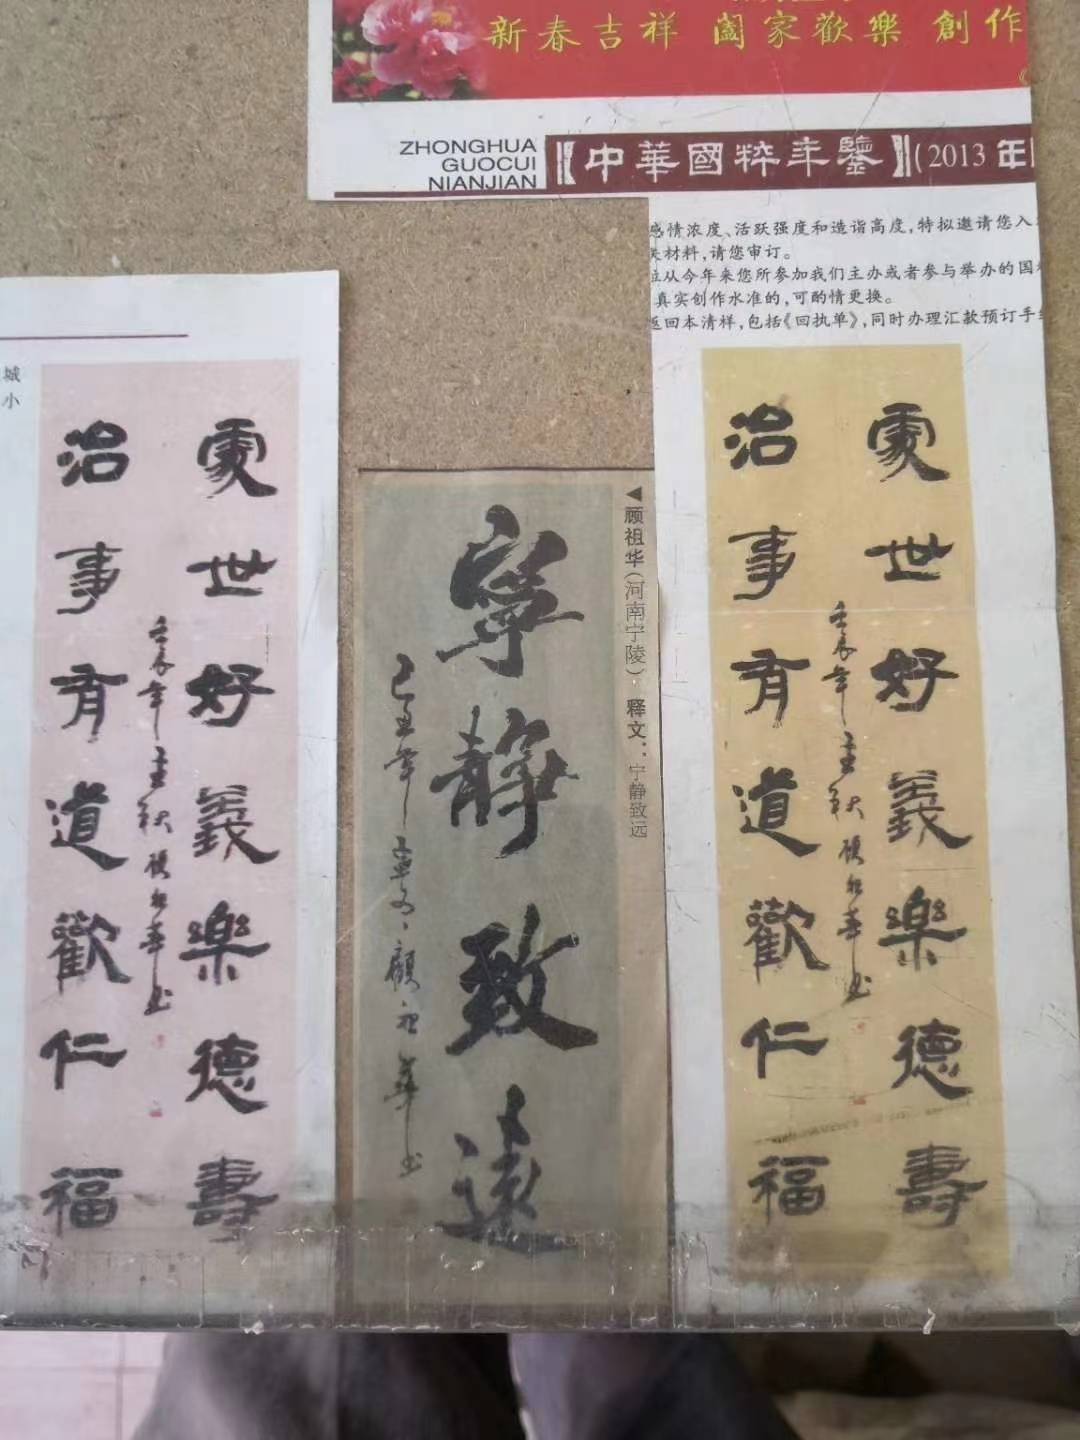 新春吉祥 阖家歡樂 創作
ZHONGHUA
GUOCUI
NIANJIAN
【中華國粹年鑒】(2013年
感情浓度、活跃强度和造诣高度,特拟邀请您入
关材料,请您审订。
位从今年来您所参加我们主办或者参与举办的国
真实创作水准的,可酌情更换。
返回本清样,包括《回执单》,同时办理汇款预订手
城
小
處世好義樂德壽
治事有道歡仁福
壬辰年孟秋顾祖華书
◀顾祖华(河南宁陵) 释文:宁静致远
寧静致遠
己丑年孟夏顧祖華书
處世好義樂德壽
治事有道歡仁福
壬辰年孟秋顾祖華书